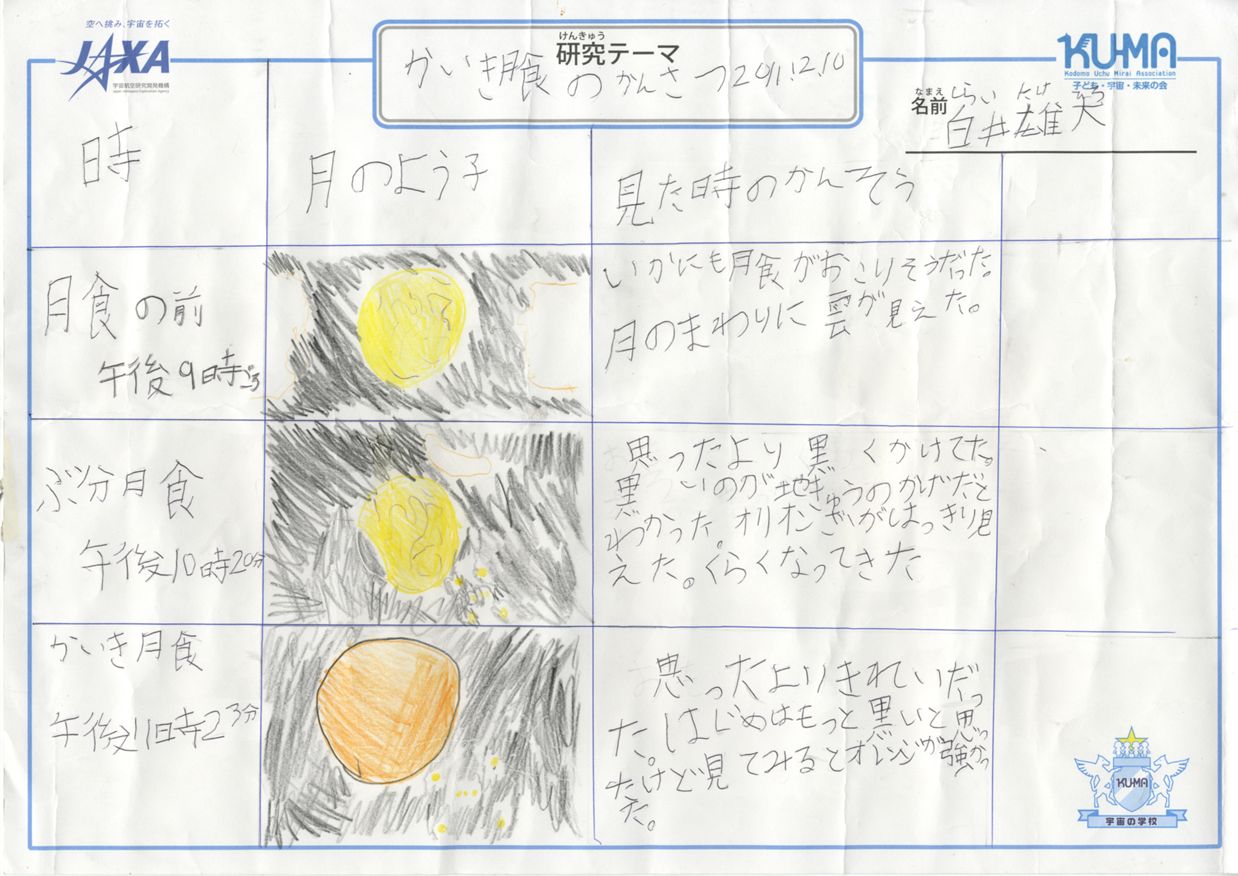 空へ挑み、宇宙を拓く
JAXA
宇宙航空研究開発機構
Japan Aerospace Exploration Agency
けんきゅう
研究テーマ
かいき月食のかんさつ2011.12.10
KU-MA
Kodomo Uchu Mirai Association
子ども・宇宙・未来の会
なまえ
名前
しらい たけ
白井雄
時
月のよう子
見た時のかんそう
月食の前
午後9時ごろ
いかにも月食がおこりそうだった。
月のまわりに雲が見えた。
ぶ分月食
午後10時20分
思ったより黒くかけてた。
黒いのが地きゅうのかげだと
わかった。オリオンざがはっきり見
えた。くらくなってきた
かいき月食
午後11時23分
思ったよりきれいだっ
た。はじめはもっと黒いと思っ
たけど見てみるとオレンジが強かっ
た。
KU-MA
宇宙の学校